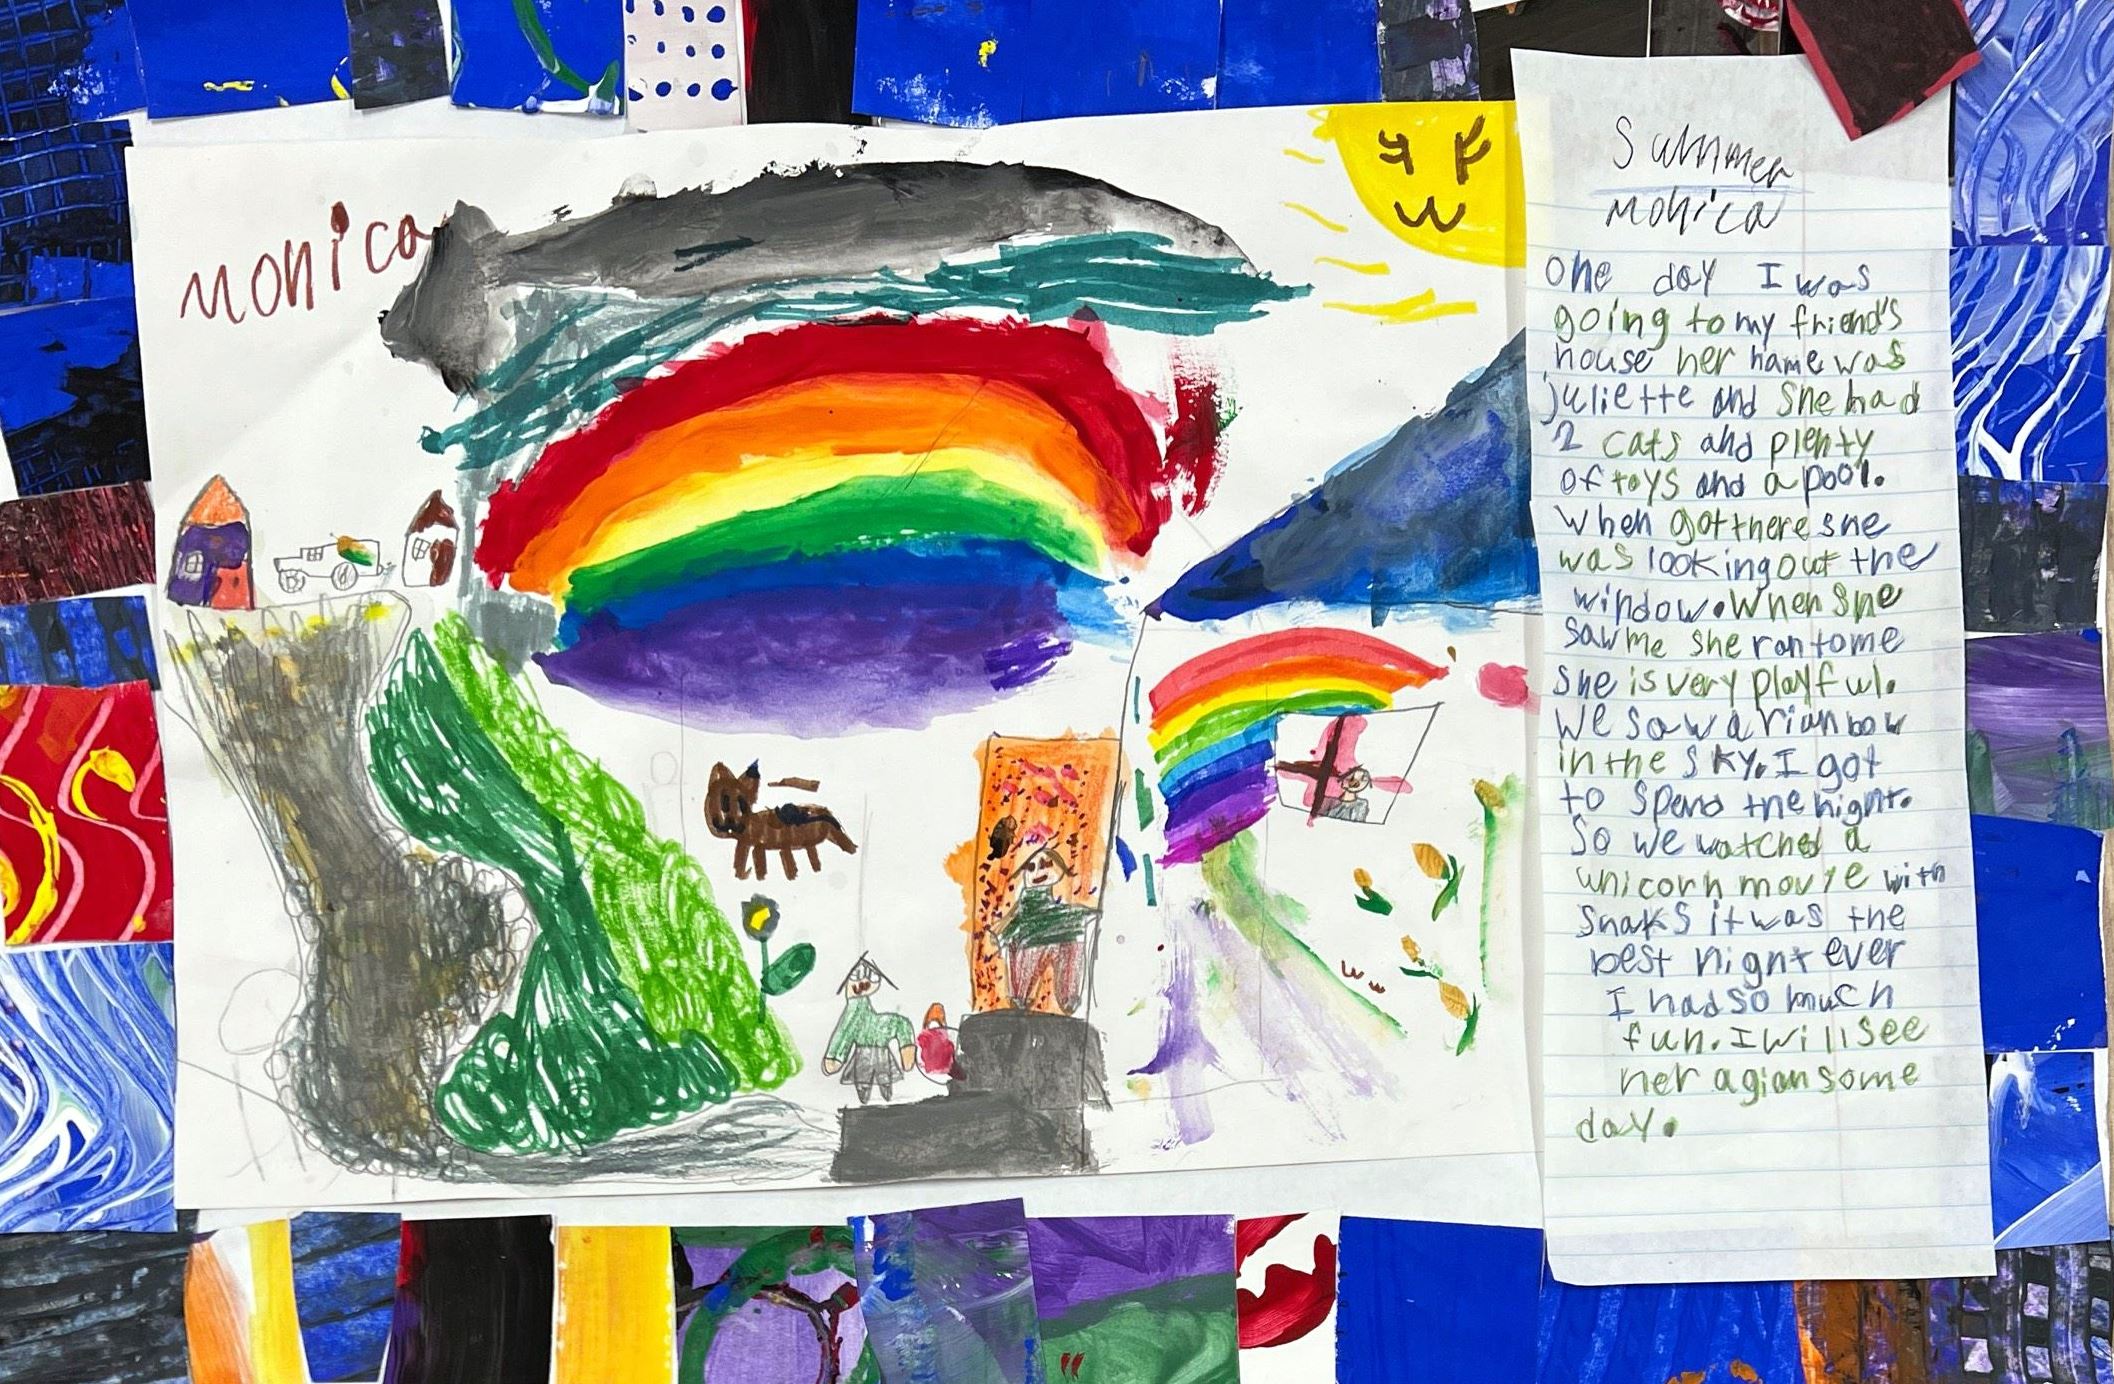 Monica
Summer
Monica
One day I was
going to my friend's
house her name was
juliette and she had
2 cats and plenty
of toys and a pool.
When got there she
was looking out the
window. When she
saw me she ran to me
she is very playful.
We saw a rianbow
in the sky. I got
to spend the night.
So we watched a
unicorn movie with
snaks it was the
best night ever
I had so much
fun. I will see
her agian some
day.